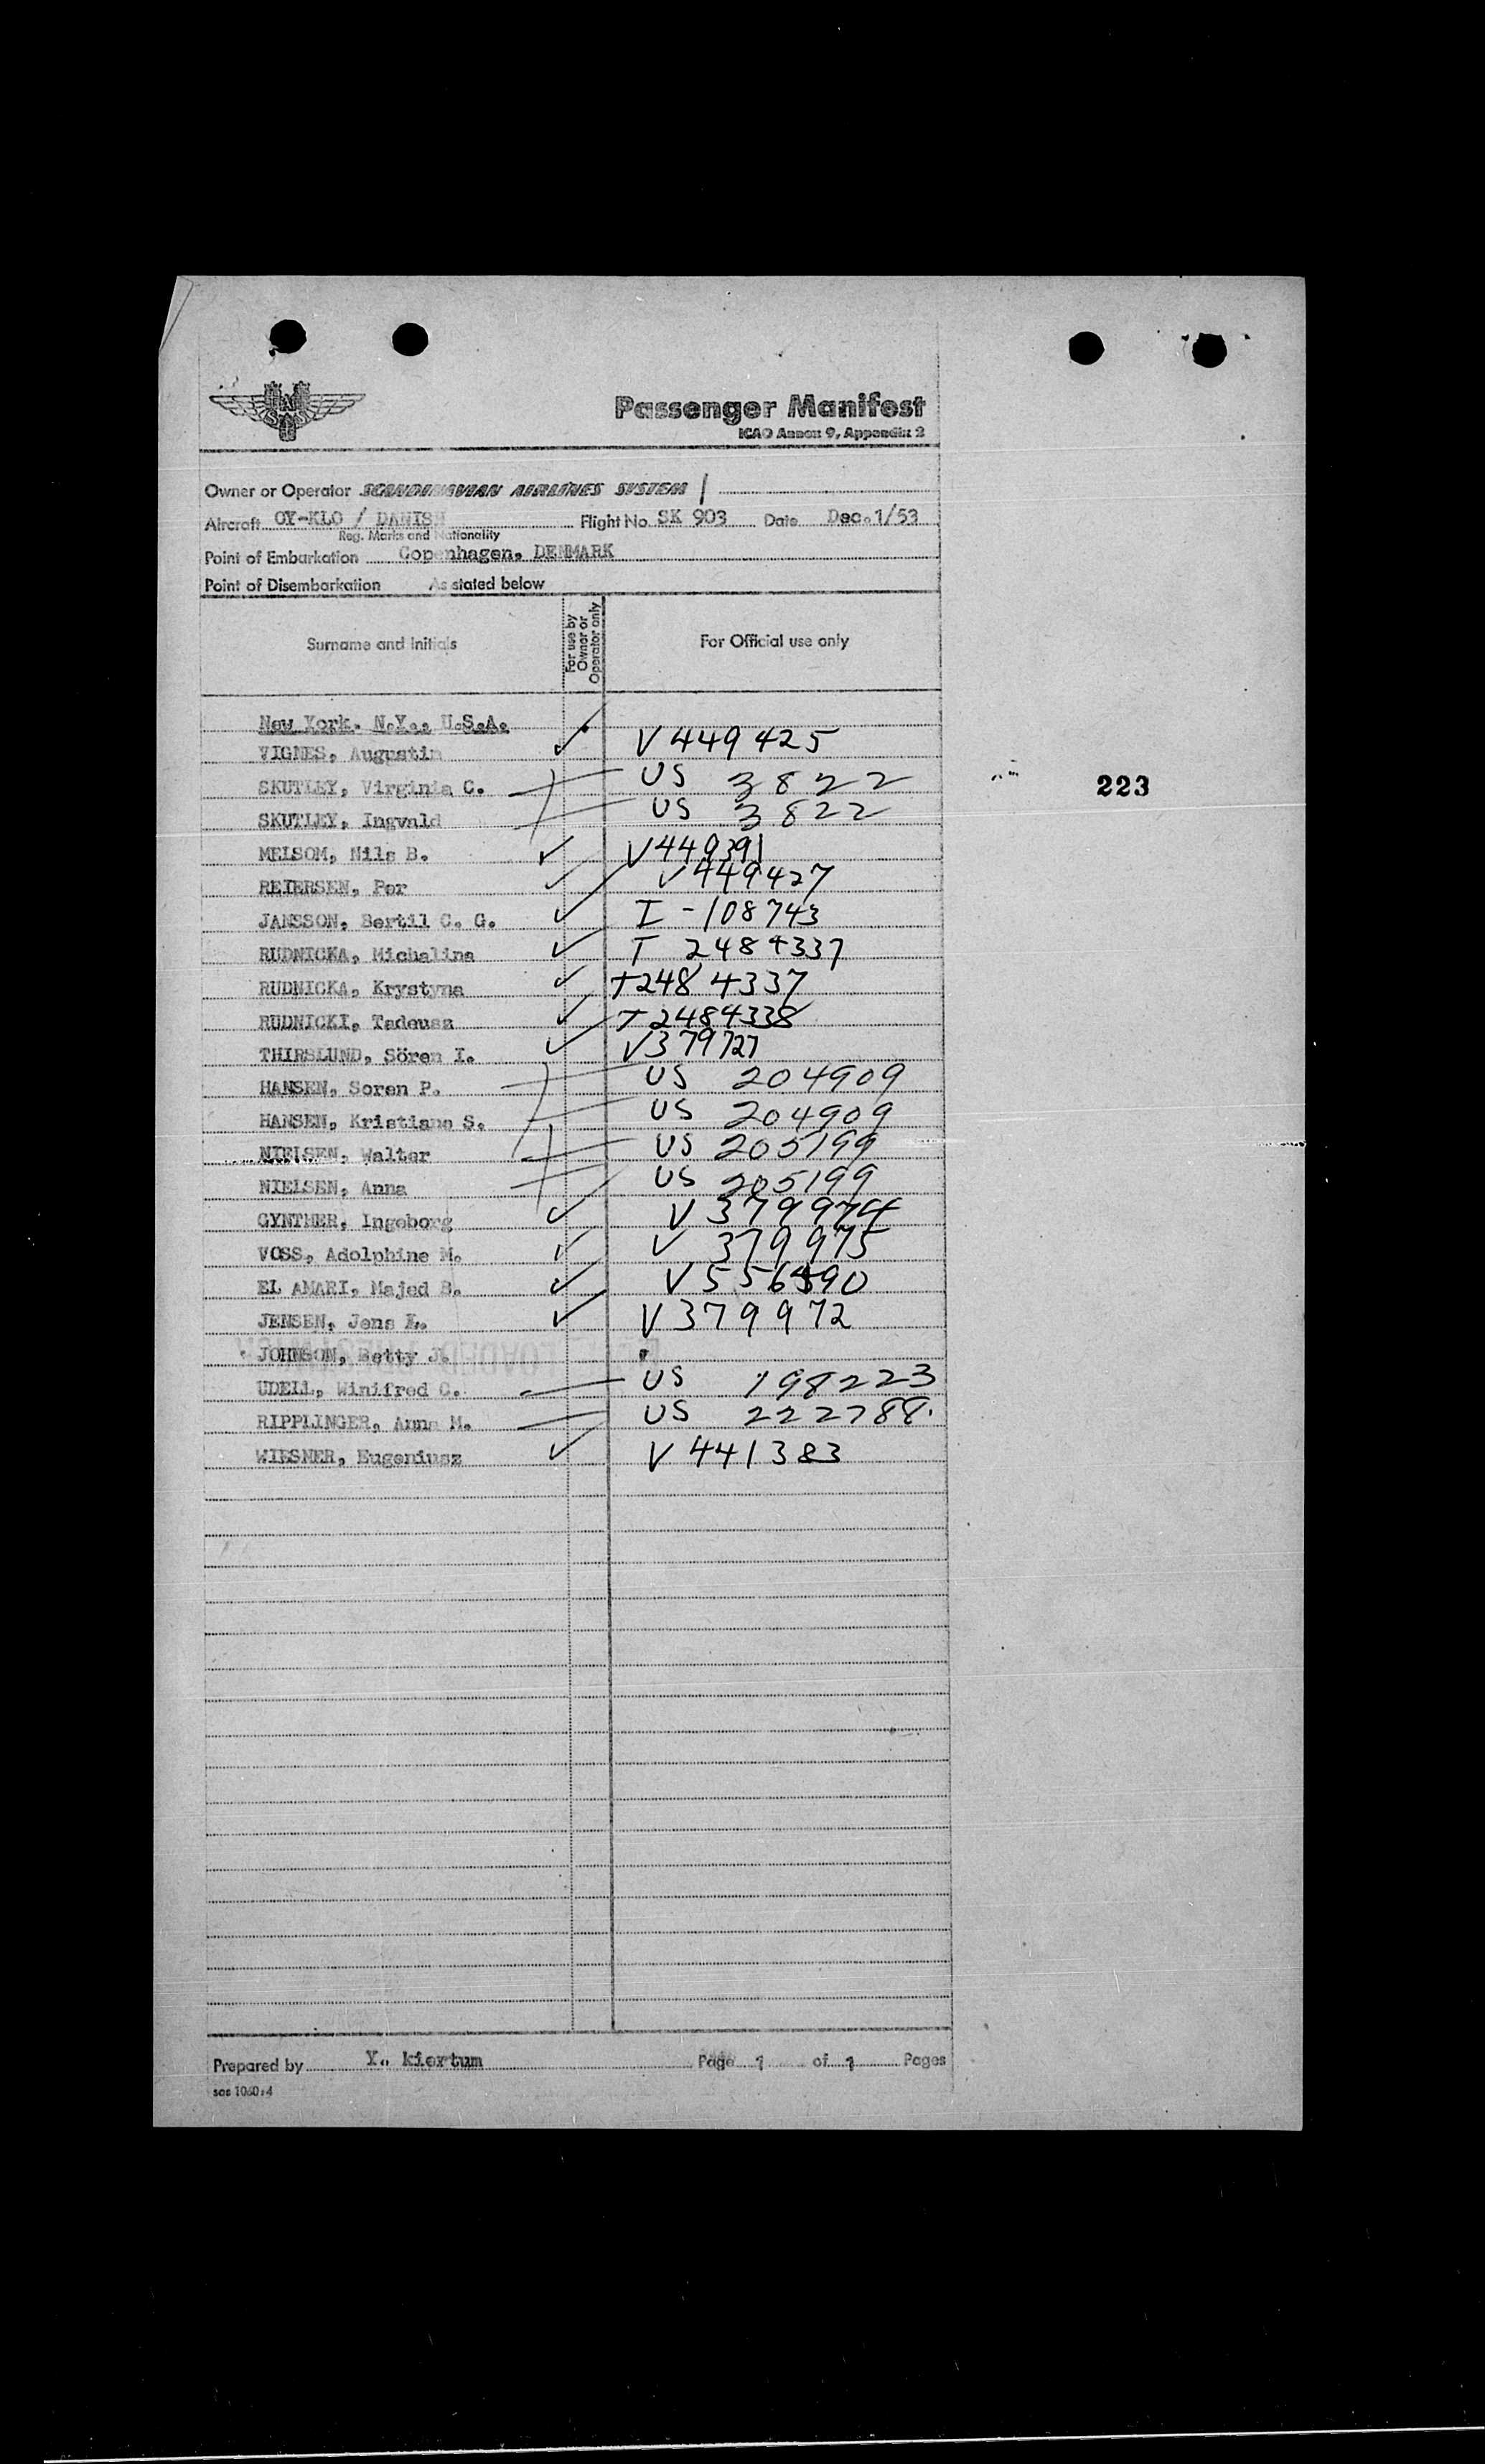 SAS
Passenger Manifest
ICAO Annex 9, Appendix 2
Owner or Operator SCANDINAVIAN AIRLINES SYSTEM /
Aircraft OY-KLO / DANISH Flight No. SK 903 Date Dec. 1/53
Reg. Marks and Nationality
Point of Embarkation Copenhagen, DENMARK
Point of Disembarkation As stated below
Surname and initials For use by Owner or Operator only For Official use only
New York. N.Y., U.S.A.
VIGNES, Augustin ✓ V 449425
SKUTLEY, Virginia C. — US 3822
223
SKUTLEY, Ingvald — US 3822
MELSOM, Nils B. ✓ V449391
REIERSEN, Per ✓ V449427
JANSSON, Bertil C. G. ✓ I-108743
RUDNICKA, Michalina ✓ T 2484337
RUDNICKA, Krystyna ✓ T2484337
RUDNICKI, Tadeusz ✓ T2484338
THIRSLUND, Sören I. ✓ V379727
HANSEN, Soren P. — US 204909
HANSEN, Kristiane S. — US 204909
NIELSEN, Walter — US 205199
NIELSEN, Anna — US 205199
GYNTHER, Ingeborg ✓ V 379974
VOSS, Adolphine M. ✓ V 379975
EL AMARI, Majed S. ✓ V556590
JENSEN, Jens ✓ V379972
JOHNSON, Betty J.
UDELL, Winifred C. — US 198223
RIPPLINGER, Anna M. — US 222788.
WIESNER, Eugeniusz ✓ V 441383
Prepared by Y. kiertum Page 1 of 1 Pages
sas 1060:4